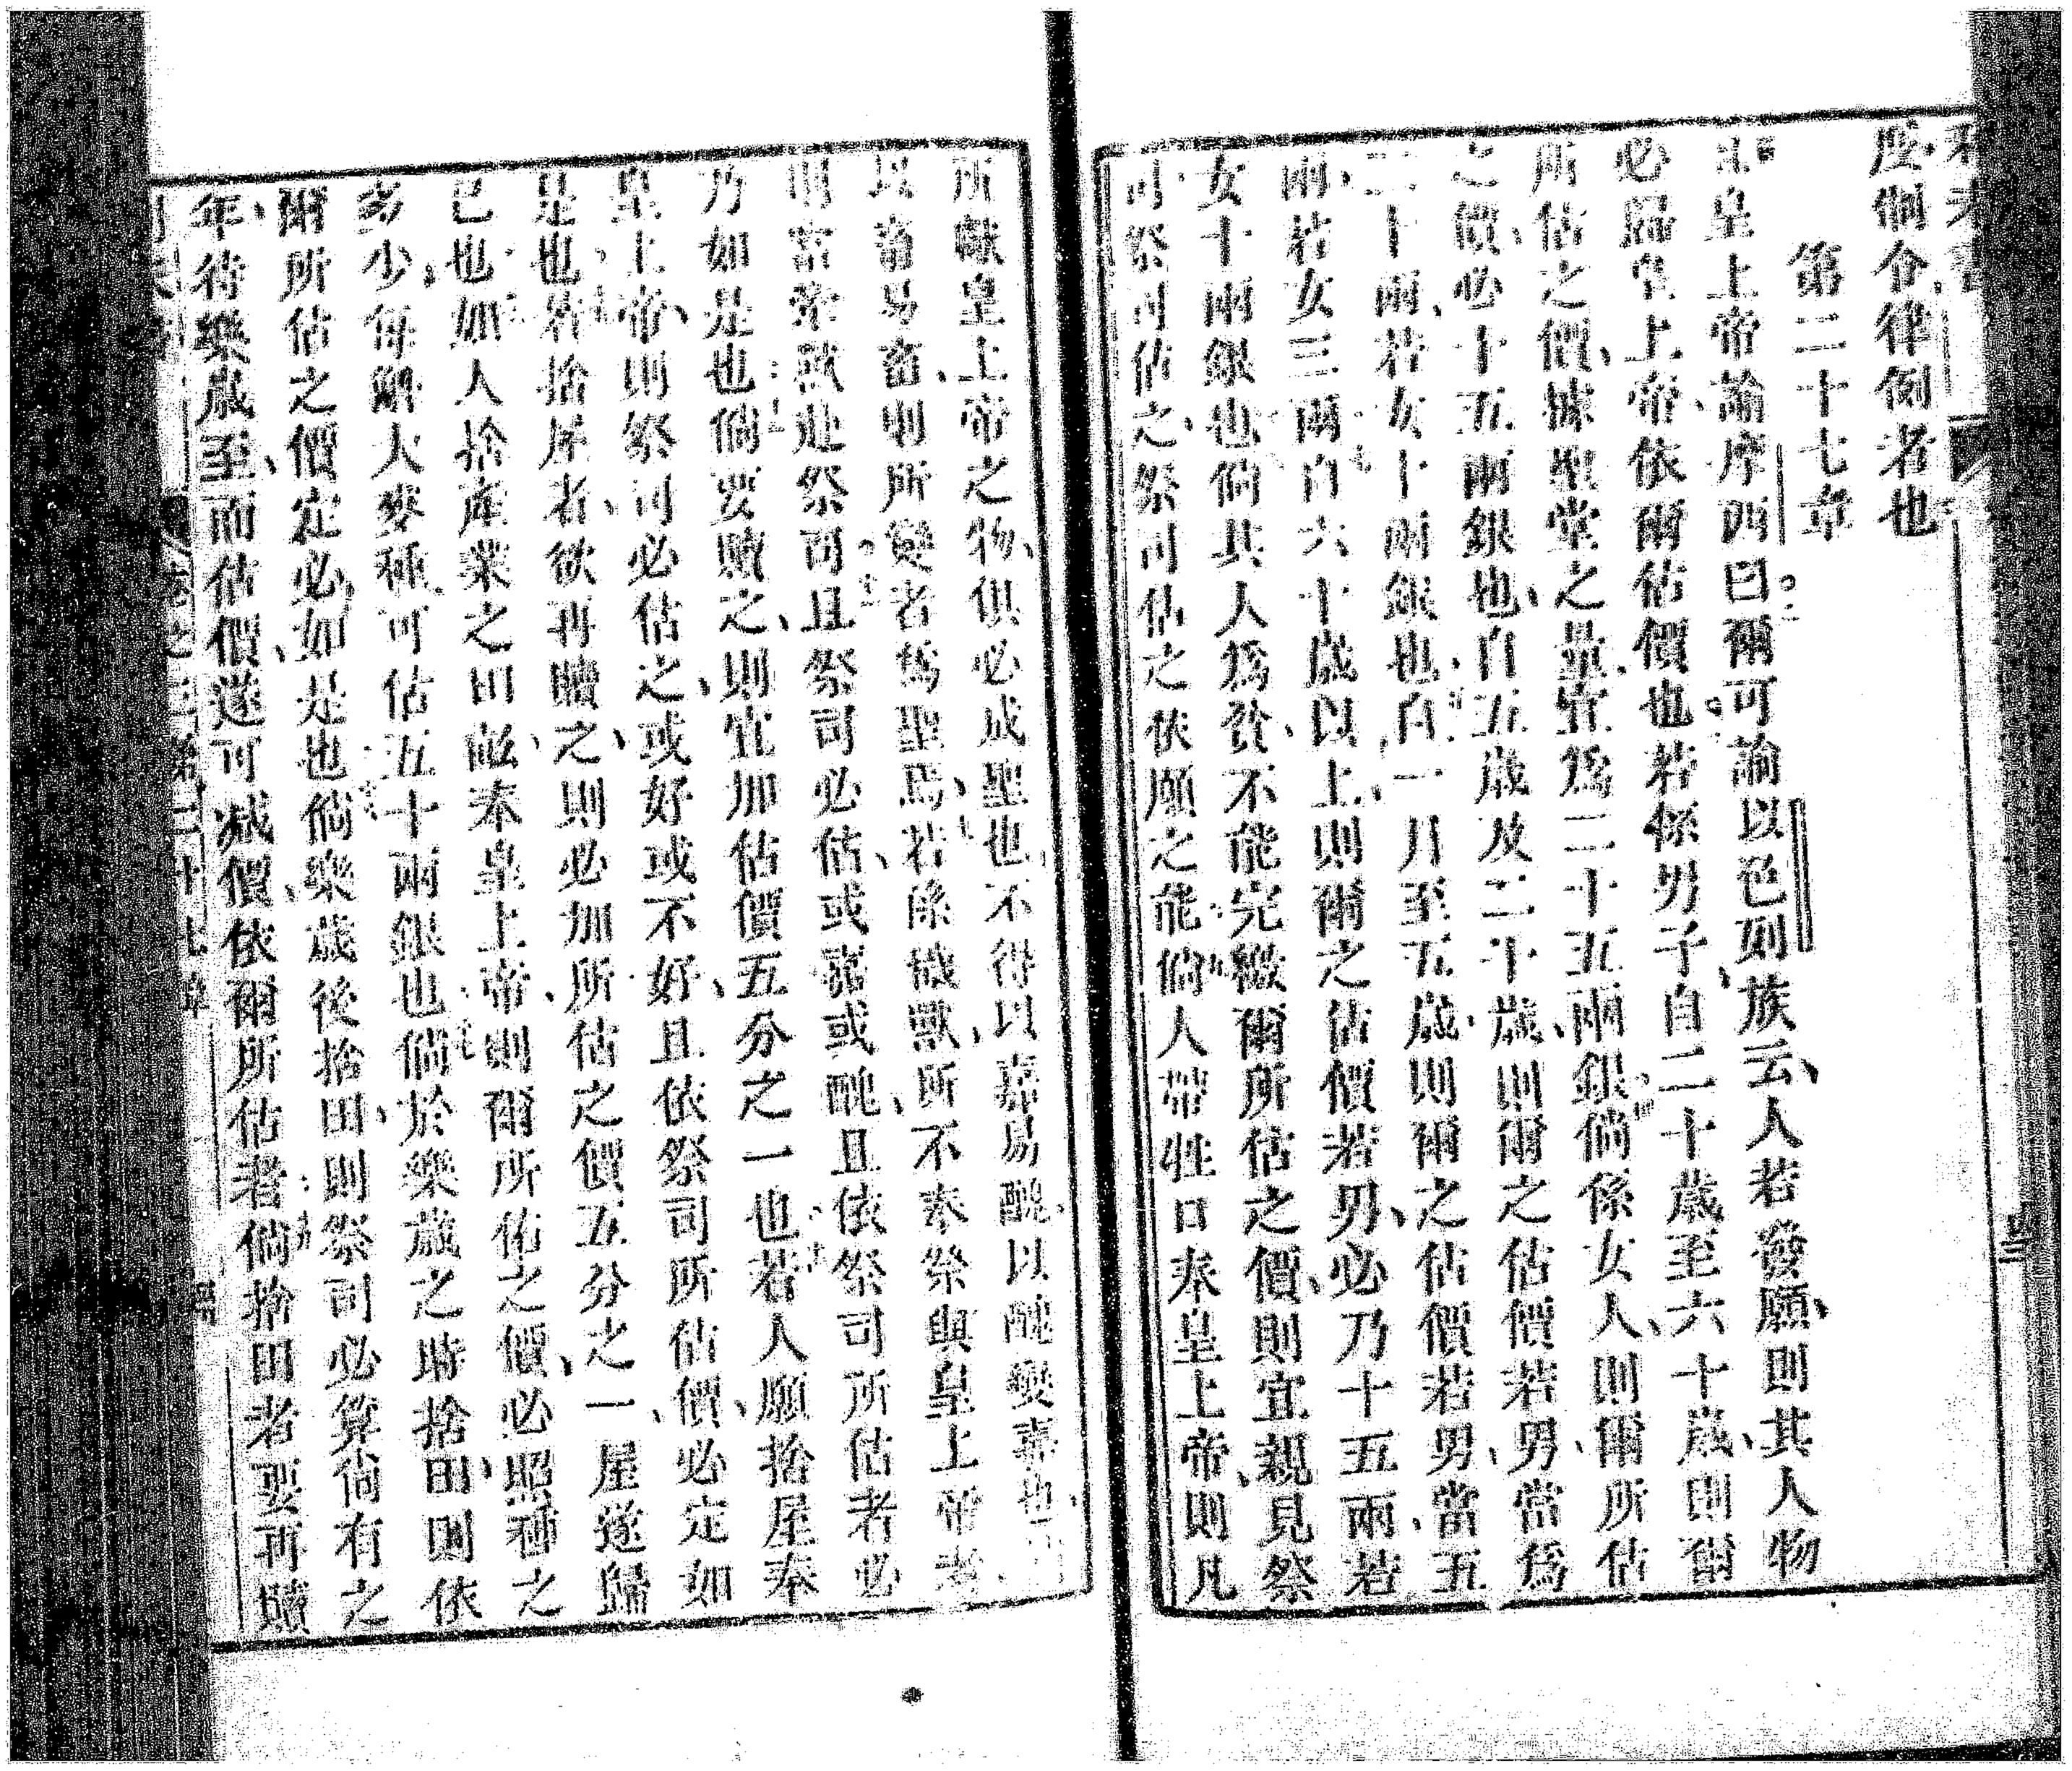 度制令律例者也
第二十七章
皇上帝諭摩西曰爾可諭以色列族云人若發願則其人物
必歸皇上帝依爾估價也若係男子自二十歲至六十歲則爾
所估之價據聖堂之量定為二十五兩銀倘係女人則爾所估
之價必十五兩銀也自五歲及二十歲則爾之估價若男當為
二十兩若女十兩銀也自一月至五歲則爾之估價若男當五
兩若女三兩自六十歲以上則爾之估價若男必乃十五兩若
女十兩銀也倘其人為貧不能完繳爾所估之價則宜親見祭
司祭司估之祭司估之依願之能倘人帶牲口奉皇上帝則凡
所獻皇上帝之物俱必成聖也不得以嘉易醜以醜變嘉也
以畜易畜則所變者為聖焉若係穢獸所不奉祭與皇上帝者
則當牽獸赴祭司且祭司必估或嘉或醜且依祭司所估者必
乃如是也倘要贖之則宜加估價五分之一也若人願捨屋奉
皇上帝則祭司必估之或好或不好且依祭司所估價必定如
是也若捨屋者欲再贖之則必加所估之價五分之一屋遂歸
已也如人捨產業之田畝奉皇上帝則爾所估之價必照種之
多少每觧大麥種可估五十兩銀也倘於樂歲之時捨田則依
爾所估之價定必如是也倘樂歲後捨田則祭司必算尚有之
年待樂歲至而估價遂可減價依爾所估者倘捨田者要再贖
卷之三第二十七章